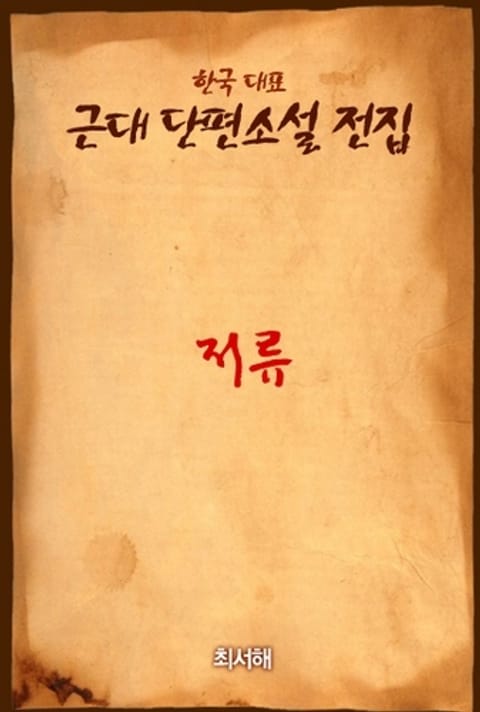 한국 대표
근대 단편소설 전집
저류
최서해